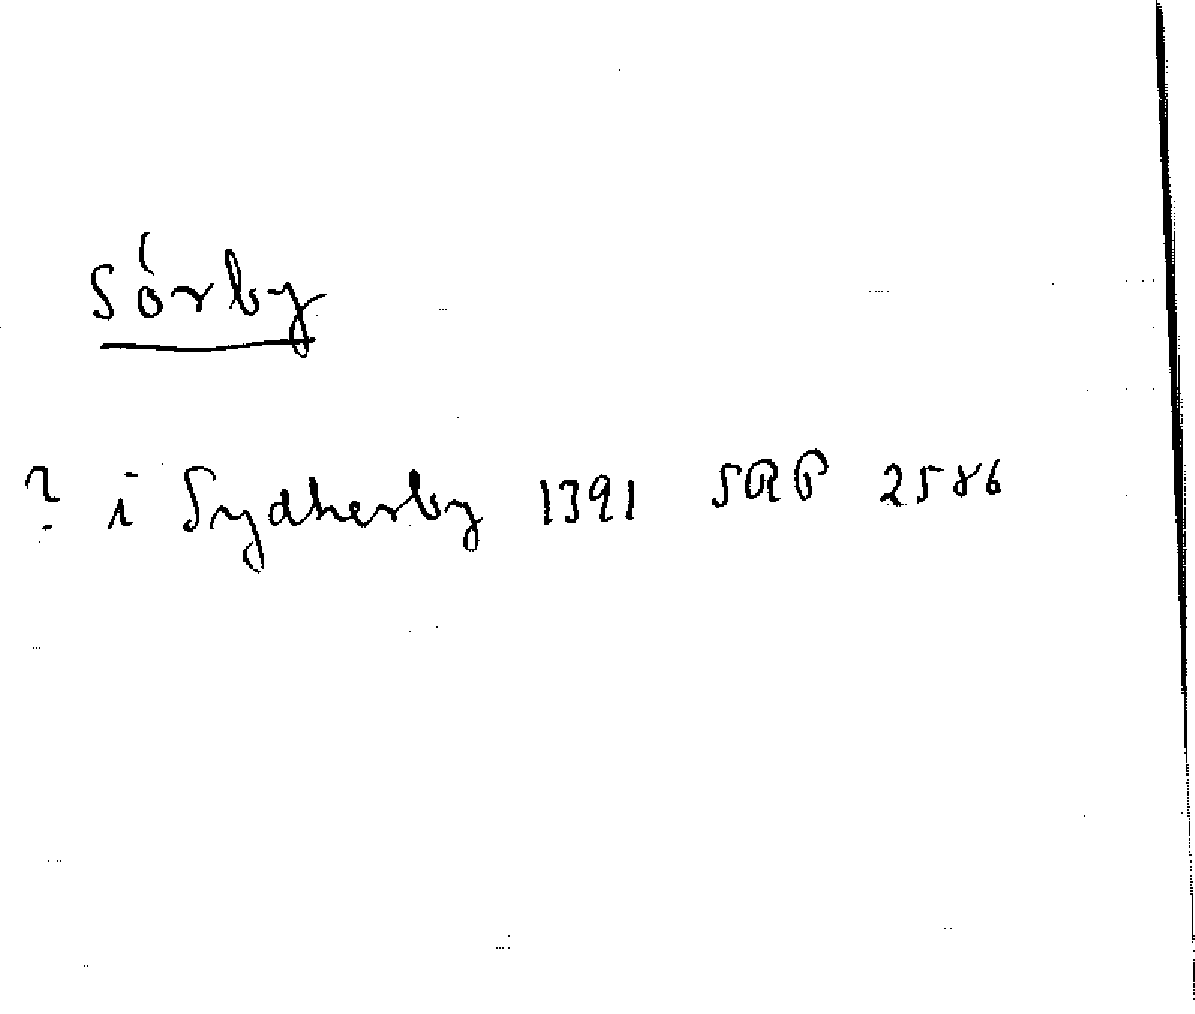 Sörby
? i Sydherby 1391 SRP 2586